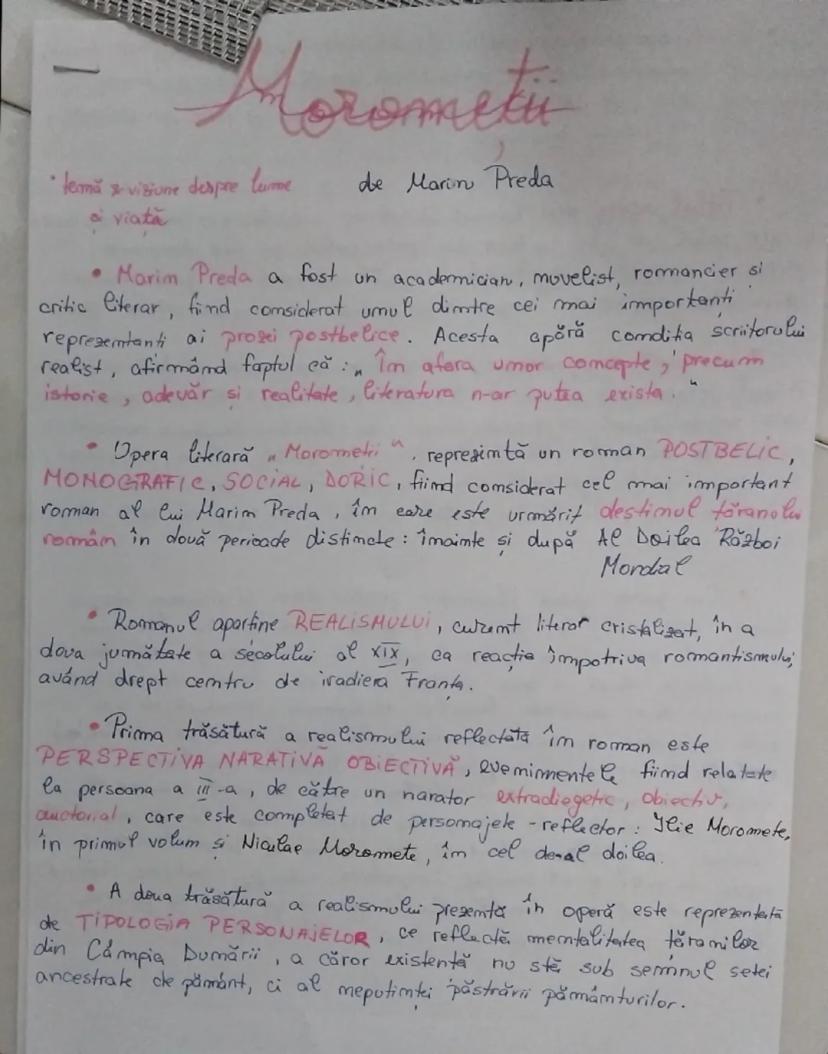 Moromeții
• temă & viziune despre lume de Marin Preda
și viață
• Marin Preda a fost un academician, nuvelist, romancier și
critic literar, fiind considerat unul dintre cei mai importanți
reprezentanți ai prozei postbelice. Acesta apără condiția scriitorului
realist, afirmând faptul că: „În afara unor concepte, precum
istorie, adevăr și realitate, literatura n-ar putea exista."
• Opera literară „Moromeții", reprezintă un roman POSTBELIC,
MONOGRAFIC, SOCIAL, DORIC, fiind considerat cel mai important
roman al lui Marin Preda, în care este urmărit destinul țăranului
român în două perioade distincte: înainte și după Al Doilea Război
Mondial
• Romanul aparține REALISMULUI, curent literar cristalizat, în a
doua jumătate a secolului al XIX, ca reacție împotriva romantismului,
având drept centru de iradiere Franța.
• Prima trăsătură a realismului reflectată în roman este
PERSPECTIVA NARATIVĂ OBIECTIVĂ, evenimentele fiind relatate
la persoana a III-a, de către un narator extradiegetic, obiectiv,
auctorial, care este completat de personajele-reflector: Ilie Moromete,
în primul volum și Niculae Moromete, în cel de-al doilea.
• A doua trăsătură a realismului prezentă în operă este reprezentată
de TIPOLOGIA PERSONAJELOR, ce reflectă mentalitatea țăranilor
din Câmpia Dunării, a căror existență nu stă sub semnul setei
ancestrale de pământ, ci al neputinței păstrării pământurilor.